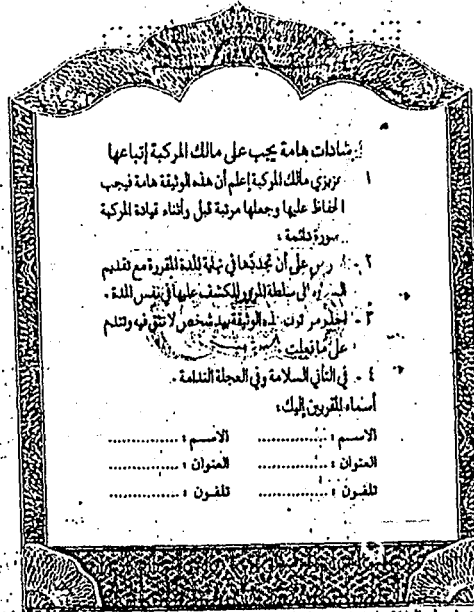 إرشادات هامة يجب على مالك المركبة إتباعها
١ - عزيزي مالك المركبة إعلم أن هذه الوثيقة هامة فيجب
الحفاظ عليها وجعلها مرتبة قبل وأثناء قيادة المركبة
بصورة دائمة .
٢ - على أن تجددها في نهاية المدة المقررة مع تقديم
إلى سلطة المرور للكشف عليها في نفس المدة .
٣ - الوثيقة بيد شخص لا تثق فيه وتندم
على ما فعلت
٤ - في التأني السلامة وفي العجلة الندامة .
أسماء المقربين إليك :
الاسم : .............. الاسم : ..............
العنوان : .............. العنوان : ..............
تلفون : .............. تلفون : ..............